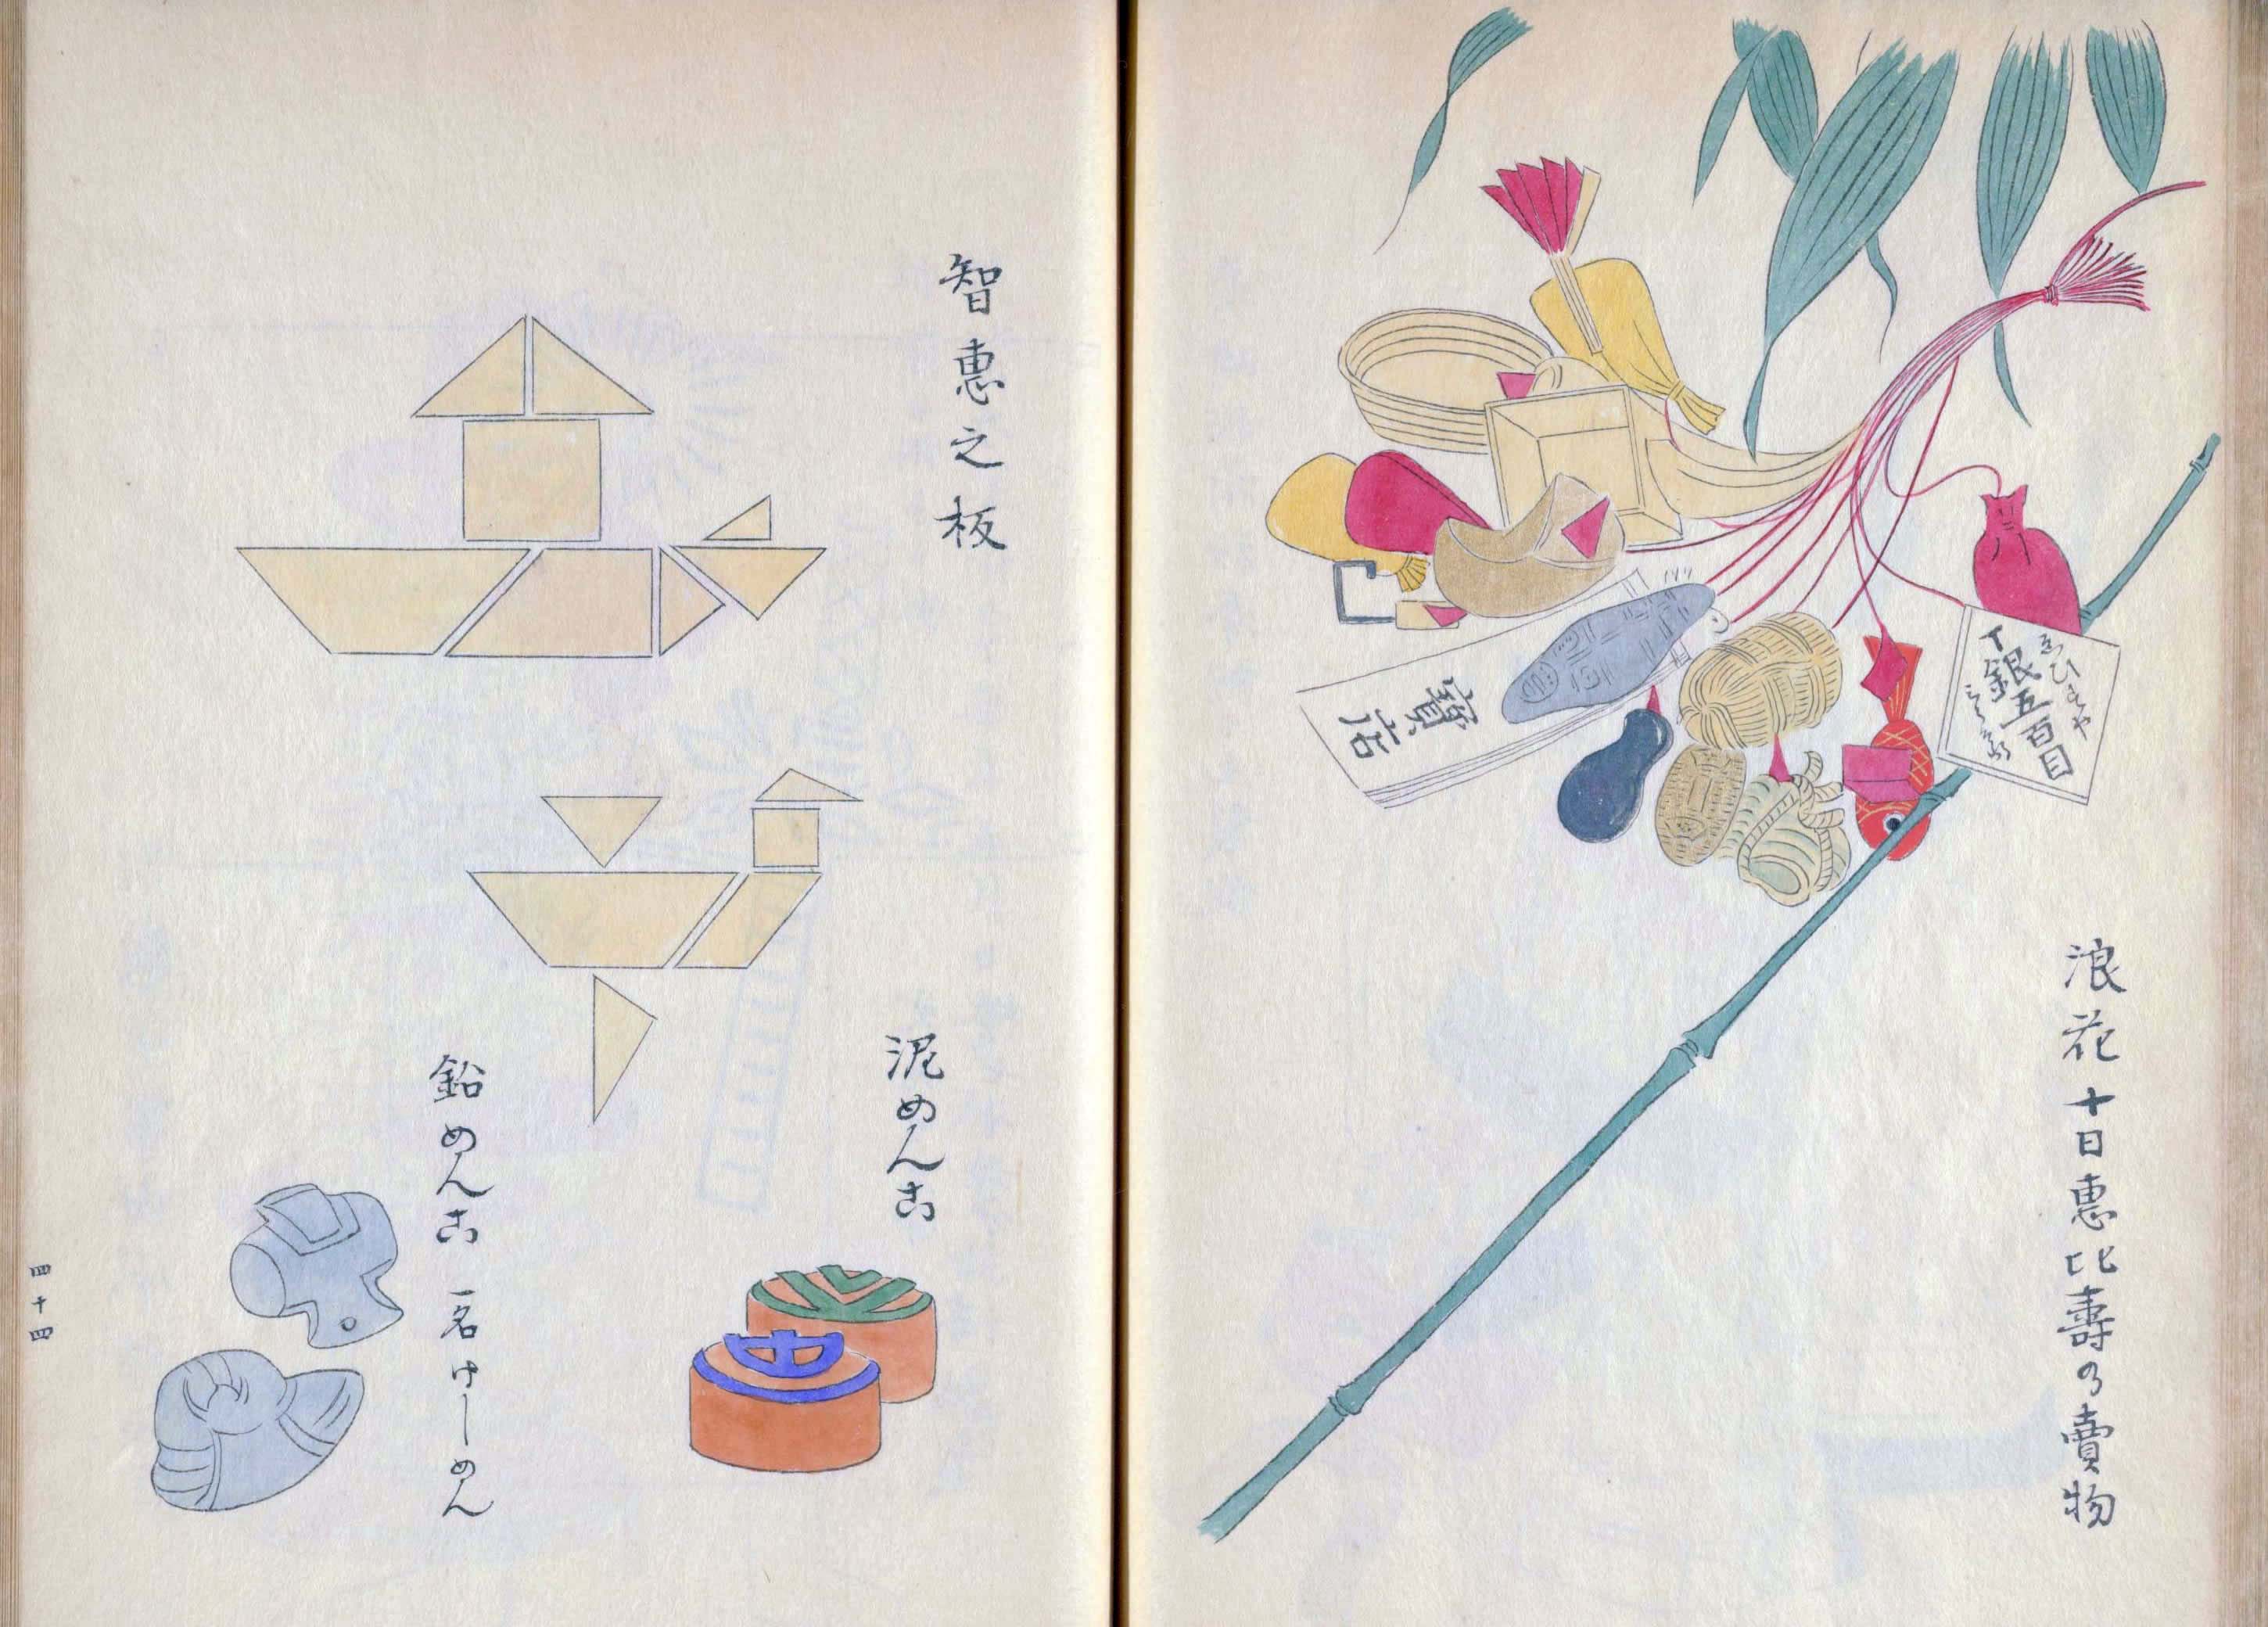 浪花十日恵比壽の賣物
ゑひすや
丁銀五百目
寶店
智恵之板
泥めんこ
鉛めんこ 一名けしめん
四十四